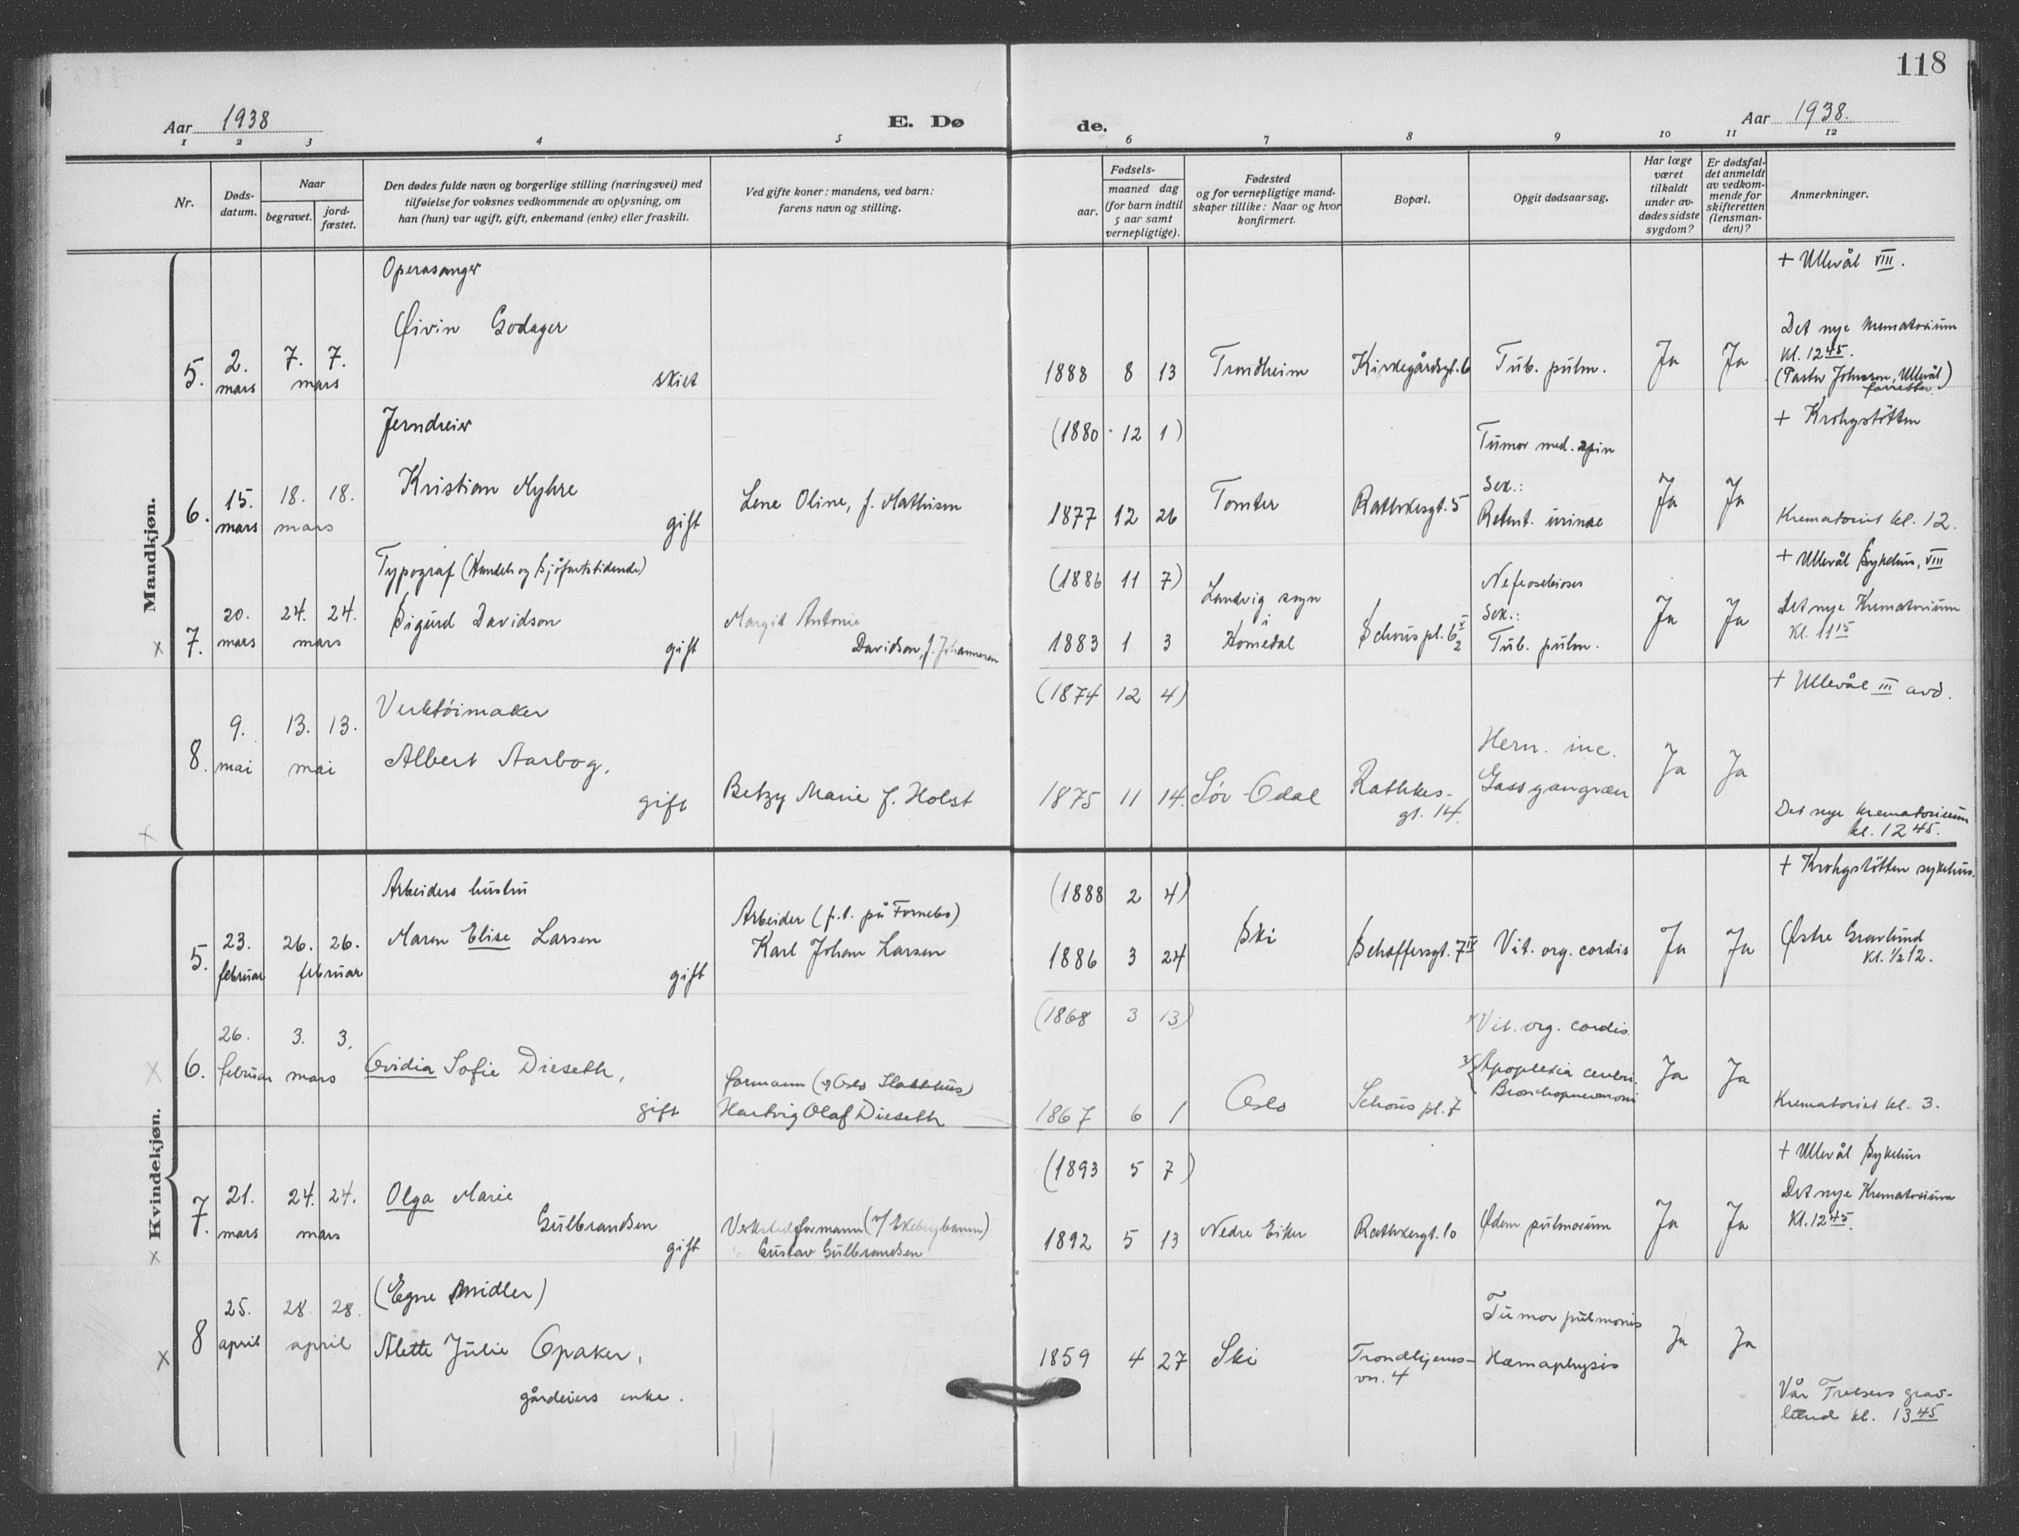 118
Aar 1938
E. Dø
de.
Aar 1938.
1 2 3 4 5 6 7 8 9 10 11 12
Nr.
Døds-
datum.
Naar
begravet.
jord-
fæstet.
Den dødes fulde navn og borgerlige stilling (næringsvei) med
tilføielse for voksnes vedkommende av oplysning, om
han (hun) var ugift, gift, enkemand (enke) eller fraskilt.
Ved gifte koner: mandens, ved barn:
farens navn og stilling.
Fødsels-
aar.
maaned dag
(for barn indtil
5 aar samt
vernepligtige).
Fødested
og for vernepligtige mand-
skaper tillike: Naar og hvor
konfirmert.
Bopæl.
Opgit dødsaarsag.
Har læge
været
tilkaldt
under av-
dødes sidste
sygdom?
Er dødsfal-
det anmeldt
av vedkom-
mende for
skifteretten
(lensman-
den)?
Anmerkninger.
Mandkjøn.
Operasanger
+ Ullevål VIII.
Øivin Godager
Det nye Krematorium
kl. 12 45.
5. 2. mars 7. 7. mars skilt 1888 8 13 Trondheim Kirkegårdsgt. 6 Tub. pulm. Ja Ja
(Pastor Johnsson, Ullevål)
forretter
Jerndreier
(1880 - 12 1)
+ Krohgstøtten
Tumor med. spin
Kristian Myhre
Sek.:
6. 15. mars 18. 18. mars gift Lene Oline, f. Mathisen 1877 12 26 Tomter Rathkesgt. 5 Retent. urinae Ja Ja
Krematoriet kl. 12.
Typograf (Handels og Sjøfartstidende)
(1886 11 7)
+ Ullevål Sykehus, VIII
Sigurd Davidson
Margit Antonie
Davidson, f. Johannesen
Landvig sogn
i
7. 20. mars 24. 24. mars gift 1883 1 3 Schous pl. 6 V 2
Sek.:
Tub. pulm. Ja Ja
Det nye Krematorium
Kl. 11 15
Verktøimaker
(1874 12 4)
+ Ullevål III avd.
Albert Aarbog,
Hern. inc.
8. 9. mai 13. 13. mai gift Betzy Marie f. Holst 1875 11 14. Sør Odal Rathkes-
gt. 14. Gassgangræn Ja Ja
Det nye Krematorium
kl. 12 45.
Kvindekjøn.
Arbeiders hustru
(1888 2 4)
+ Krohgstøtten sykehus.
Arbeider (f.t. på Fornebo)
Maren Elise Larsen
Karl Johan Larsen
5. 23. februar 26. 26. februar gift 1886 3 24 Ski Schæffersgt. 7 IV Vit. org. cordis Ja Ja
Østre Gravlund
Kl. 1/2 12.
(1868 3 13)
Vit. org. cordis.
Ovidia Sofie Dieseth,
formann (v/ Oslo Slaktehus)
Hartvig Olaf Dieseth
Apoplexia cerebri.
Bronchopneumoni
6. 26. februar 3. 3. mars gift 1867 6 1 Oslo Schous pl. 7 Ja Ja
Krematoriet kl. 3.
(1893 5 7)
+ Ullevål Sykehus
Olga Marie
Gulbrandsen
Verkstedformann (v/ Ekebergbanen)
Gustav Gulbrandsen
7. 21. mars 24. 24. mars gift 1892 5 13 Nedre Eiker Rathkesgt. 10 Ødem pulmorum Ja Ja
Det nye Krematorium
Kl. 12 45.
(Egne Midler)
Tumor pulmonis
8 25. april 28. 28. april Alette Julie Opaker,
gårdeiers enke.
1859 4 27 Ski Trondhjems-
vn. 4 Hæmophysis Ja Ja
Vår Frelsers grav-
lund kl. 13 45